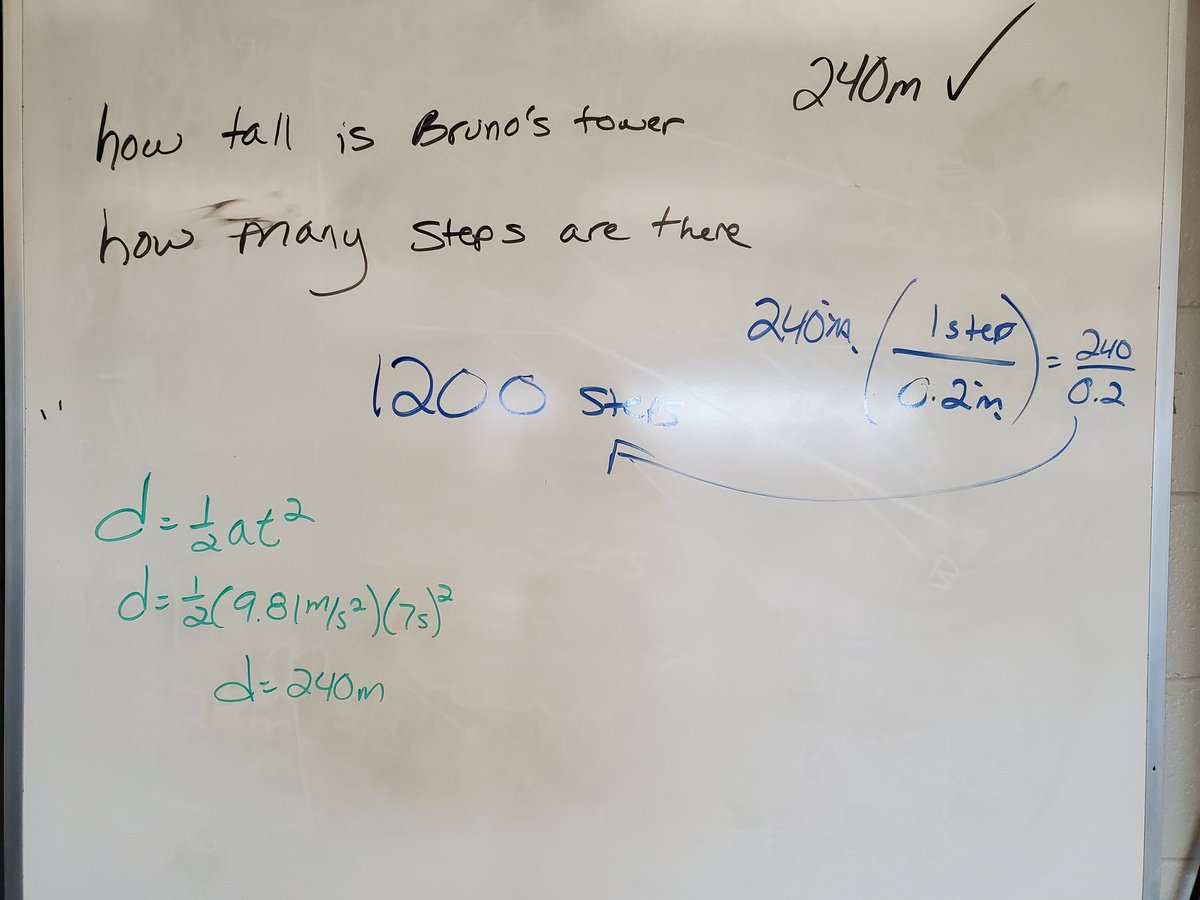 240m ✓
how tall is Bruno's tower
how many steps are there
240m (1 step / 0.2m) = 240 / 0.2
1200 steps
d = 1/2 at²
d = 1/2 (9.81 m/s²)(7s)²
d = 240m